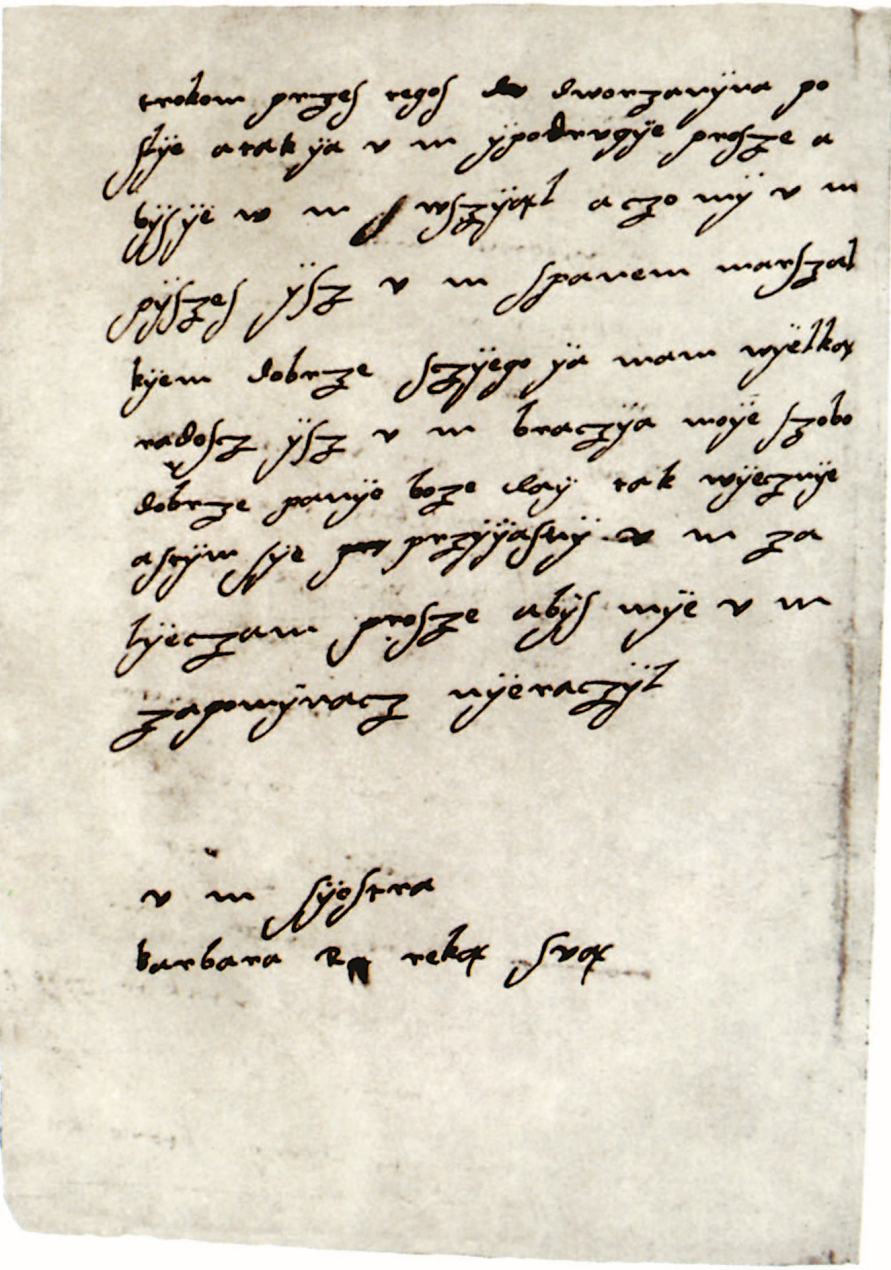 trokom przes tegos dworzanÿna po
slÿe a tak ÿa v m ÿpodrugÿe prosze a
bÿsÿe w m wszÿąl a czo mÿ v m
pÿszes ÿsz v m spanem marszal
kÿem dobrze sczÿego ÿa mam wÿelką
radoscz ÿsz v m braczÿa moÿe szobo
dobrze panÿe boze daÿ tak wÿecznÿe
a stÿm sÿe przÿÿasnÿ v m za
lÿeczam prosze abÿs mÿe v m
zapomÿnacz nÿeraczÿl
v m sÿostra
barbara R reką svoą